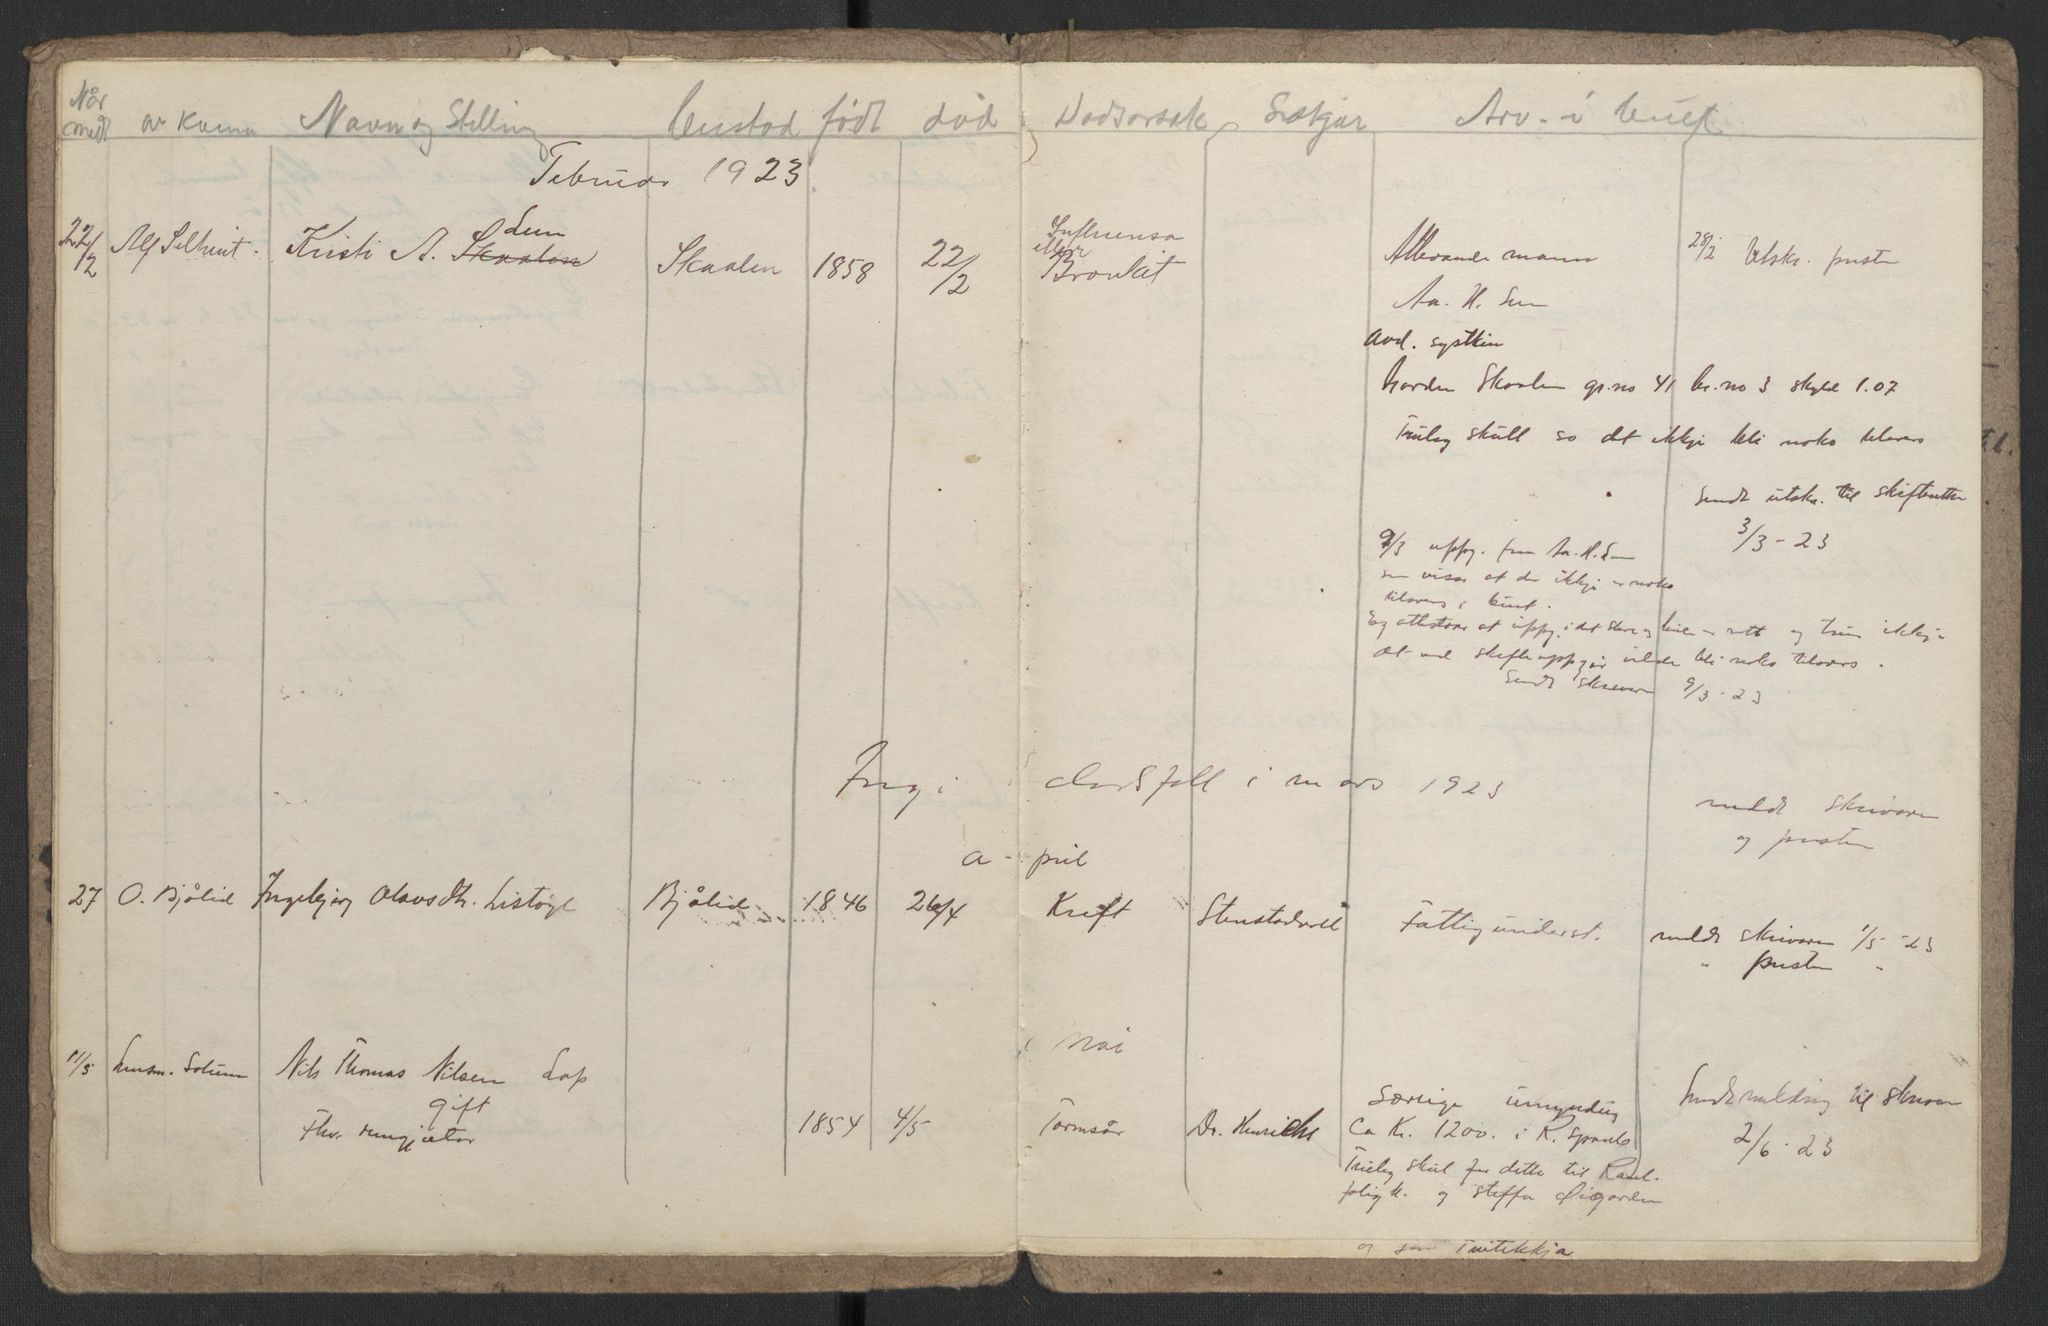 Når meldt av kvem Navn og Stilling bustad født død Dødsorsak Sælgjar Arv - i buet
Februar 1923
22/2 Alf Selheint. Kristi A. Skaalen Sun Skaalen 1858 22/2 Influensa eller Bronkit Attlevande mann 28/2 Utskr. presten
Aa. H. Sun
avd. systkin
Garden Skaalen gr.no 41 br.no 3 skyld 1.07
Truleg skuld so det ikkje bli noko tilovers
Sendt utskr. til skifteretten
3/3 - 23
9/3 uppg. fraa Aa. H. Sun
som visar at der ikkje er noko
tilovers i buet.
Eg attesterar at uppg. i det store og heile er rett og trur ikkje
det ved skifteuppgjer vilde bli noko tilovers.
Sendt skrivaren 9/3 - 23
Ingi dødsfall i mars 1923
meldt skrivaren
og presten
a - pril
27 O. Bjålid Ingebjørg Olavsdtr. Listøyl Bjålid 1846 26/4 Kreft Fattigunderst. meldt skrivaren 1/5 - 23
" presten "
mai
11/5 Lensm. Nils Thomas Nilsen Lap
gift
Fhv. 1854 4/5 Dr. Hinrichs Særeige umyndug Sendt melding til skrivaren
Ca Kr. 1200. i K. Spareb 2/6 - 23
Truleg skuld for dette til
og Steffa Øigarden
og